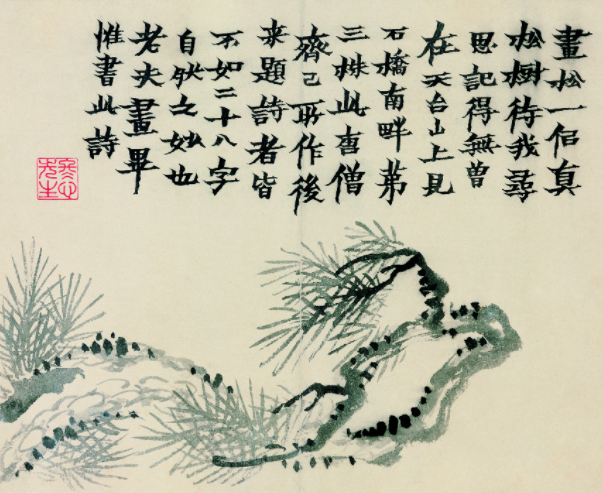 畫松一佀真
松樹待我尋
思記得無曽
在天台山上見
石橋南畔苐
三株此唐僧
齊己所作後
来題詩者皆
不如二十八字
自然之妙也
老夫畫畢
惟書此詩
冬心先生